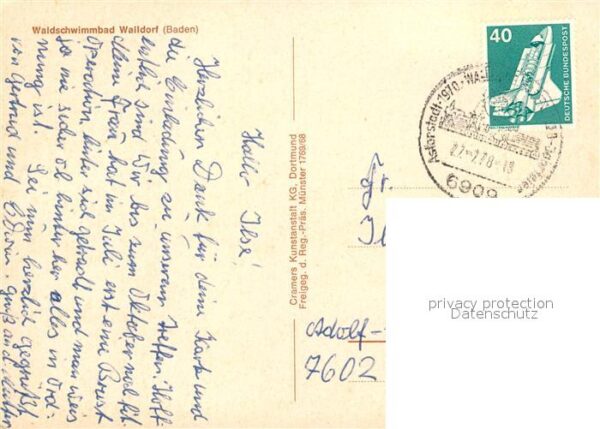 Waldschwimmbad Walldorf (Baden)
Hallo Ilse!
Herzlichen Dank für deine Karte und
die Einladung zu unserem Treffen. Hoff-
entlich sind wir bis zum Oktober
Frau hat im Juli erst eine Brust
operation hinter sich gebracht und man weis
ja nie sicher ob hinterher alles in Ord-
nung ist. Sei nun herzlich gegrüßt
von Gertrud und Edwin. Gruß and.
Cramers Kunstanstalt KG, Dortmund
Freigeg. d. Reg.-Präs. Münster 1769/68
40
DEUTSCHE BUNDESPOST
Astorstadt
6909
Fr.
Adolf-
7602
privacy protection
Datenschutz